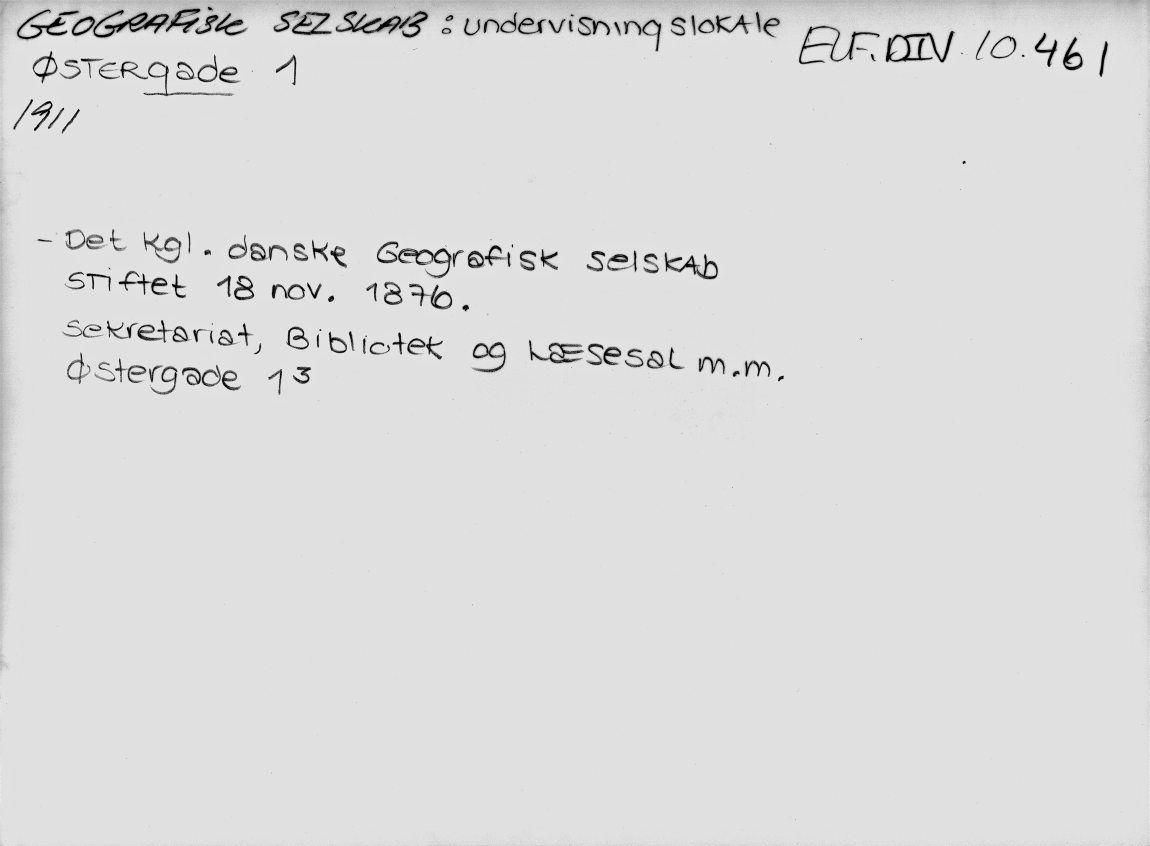 GEOGRAFISK SELSKAB : undervisningslokale
ELF. DIV. 10.461
ØSTERgade 1
1911
- Det kgl. danske Geografisk selskab
stiftet 18 nov. 1876.
sekretariat, Bibliotek og Læsesal m.m.
Østergade 1³